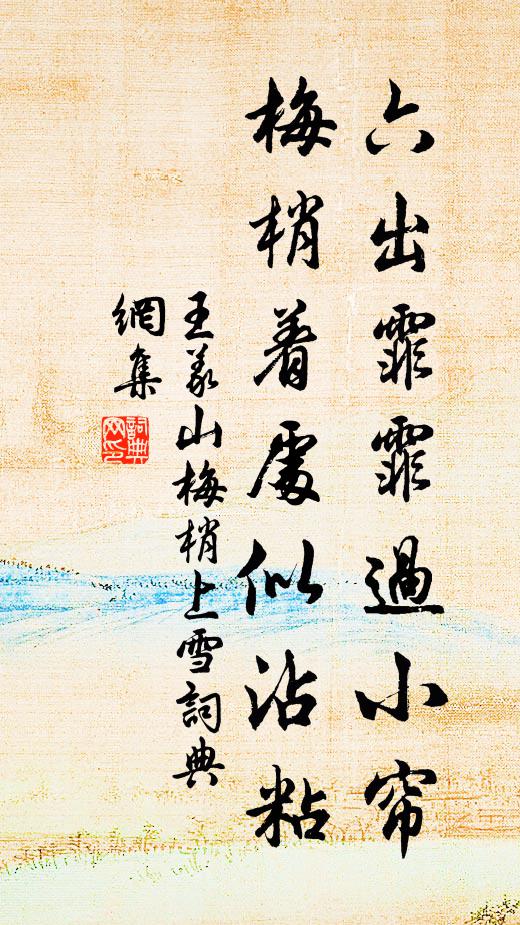 六出霏霏過小帘
梅梢着處似沾粘
王義山梅梢上雪詞典
網集
詞典
网印